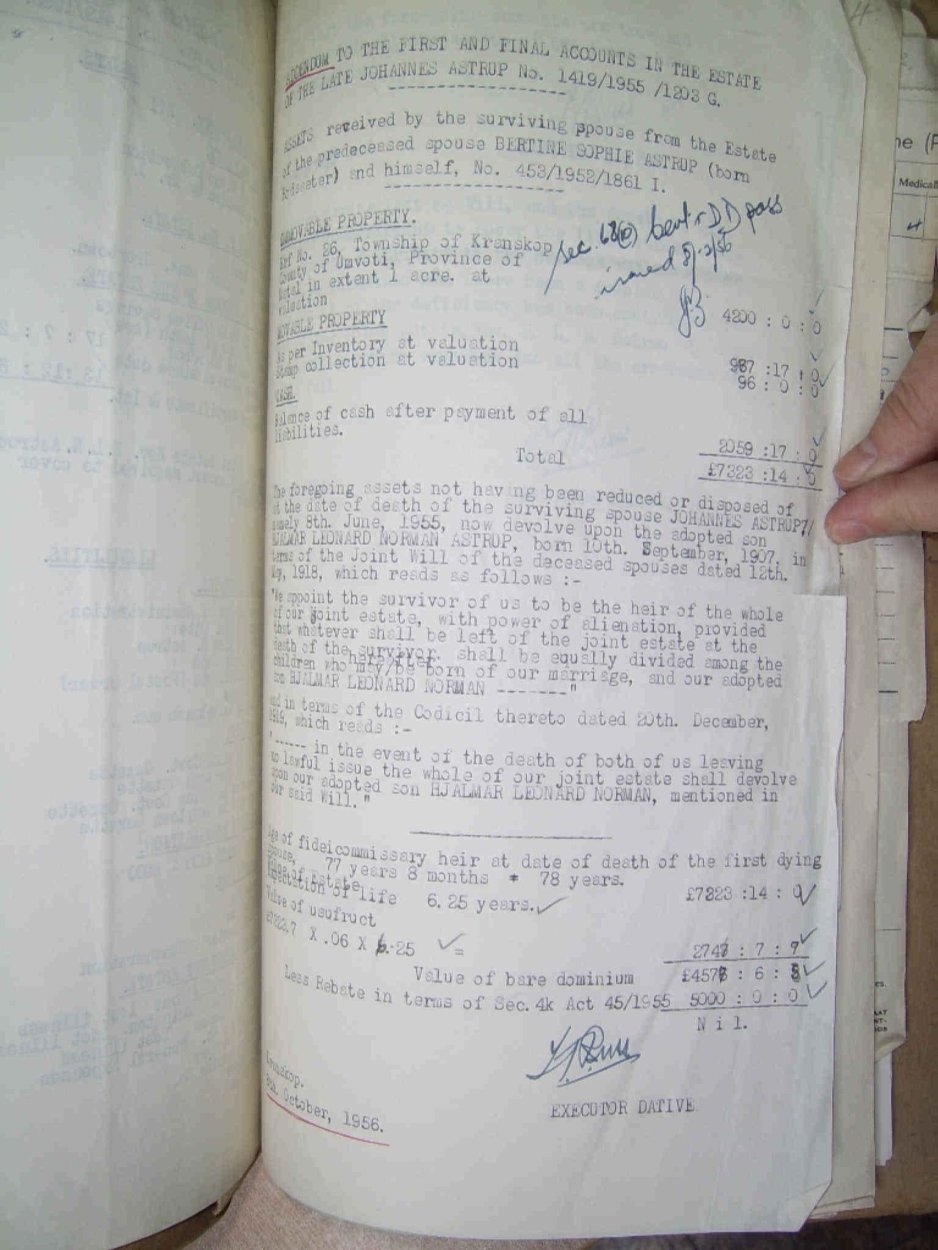 ADDENDUM TO THE FIRST AND FINAL ACCOUNTS IN THE ESTATE
OF THE LATE JOHANNES ASTRUP No. 1419/1955 /1203 G.
-------------------
ASSETS received by the surviving ppouse from the Estate
of the predeceased spouse BERTINE SOPHIE ASTRUP (born
and himself, No. 453/1952/1861 I.
-------------------
IMMOVABLE PROPERTY.
No. 26, Township of Kranskop
County of Umvoti, Province of
Natal in extent 1 acre. at
valuation
sec. 68
issued
4200 : 0 : 0
MOVABLE PROPERTY
As per Inventory at valuation 967 :17 : 0
Stamp collection at valuation 96 : 0 : 0
CASH.
Balance of cash after payment of all
liabilities. 2059 :17 : 0
Total £7323 :14 : 0
The foregoing assets not having been reduced or disposed of
at the date of death of the surviving spouse JOHANNES ASTRUP,
namely 8th. June, 1955, now devolve upon the adopted son
HJALMAR LEONARD NORMAN ASTRUP, born 10th. September, 1907, in
terms of the Joint Will of the deceased spouses dated 12th.
1918, which reads as follows :-
"We appoint the survivor of us to be the heir of the whole
of our joint estate, with power of alienation, provided
that whatever shall be left of the joint estate at the
death of the survivor. shall be equally divided among the
hereafter
children who may/be born of our marriage, and our adopted
son HJALMAR LEONARD NORMAN -------"
and in terms of the Codicil thereto dated 20th. December,
1919, which reads :-
"------ in the event of the death of both of us leaving
no lawful issue the whole of our joint estate shall devolve
upon our adopted son HJALMAR LEONARD NORMAN, mentioned in
our said Will."
Age of fideicommissary heir at date of death of the first dying
spouse, 77 years 8 months = 78 years.
Value of Estate £7323 :14 : 0
Expectation of life 6.25 years.
Value of usufruct
7323.7 X .06 X 6.25 = 2747 : 7 : 9
Value of bare dominium £4576 : 6 : 3
Less Rebate in terms of Sec. 4k Act 45/1955 5000 : 0 : 0
N i l.
EXECUTOR DATIVE
Kranskop.
October, 1956.